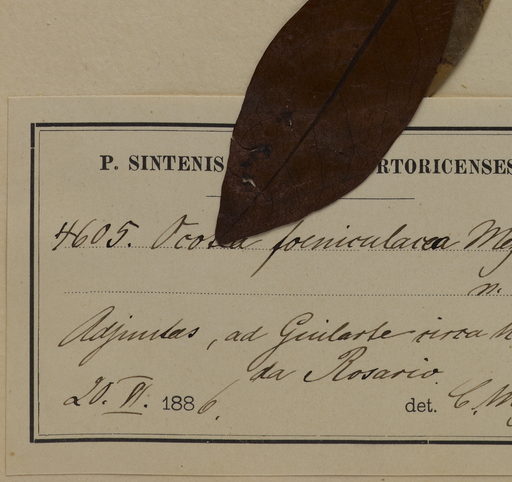 P. SINTENIS RTORICENSES
4605. Ocotea foeniculacea Me
n.
Adjuntas, ad Guilarte circa
da Rosario.
20. VI. 1886.
det. C. M